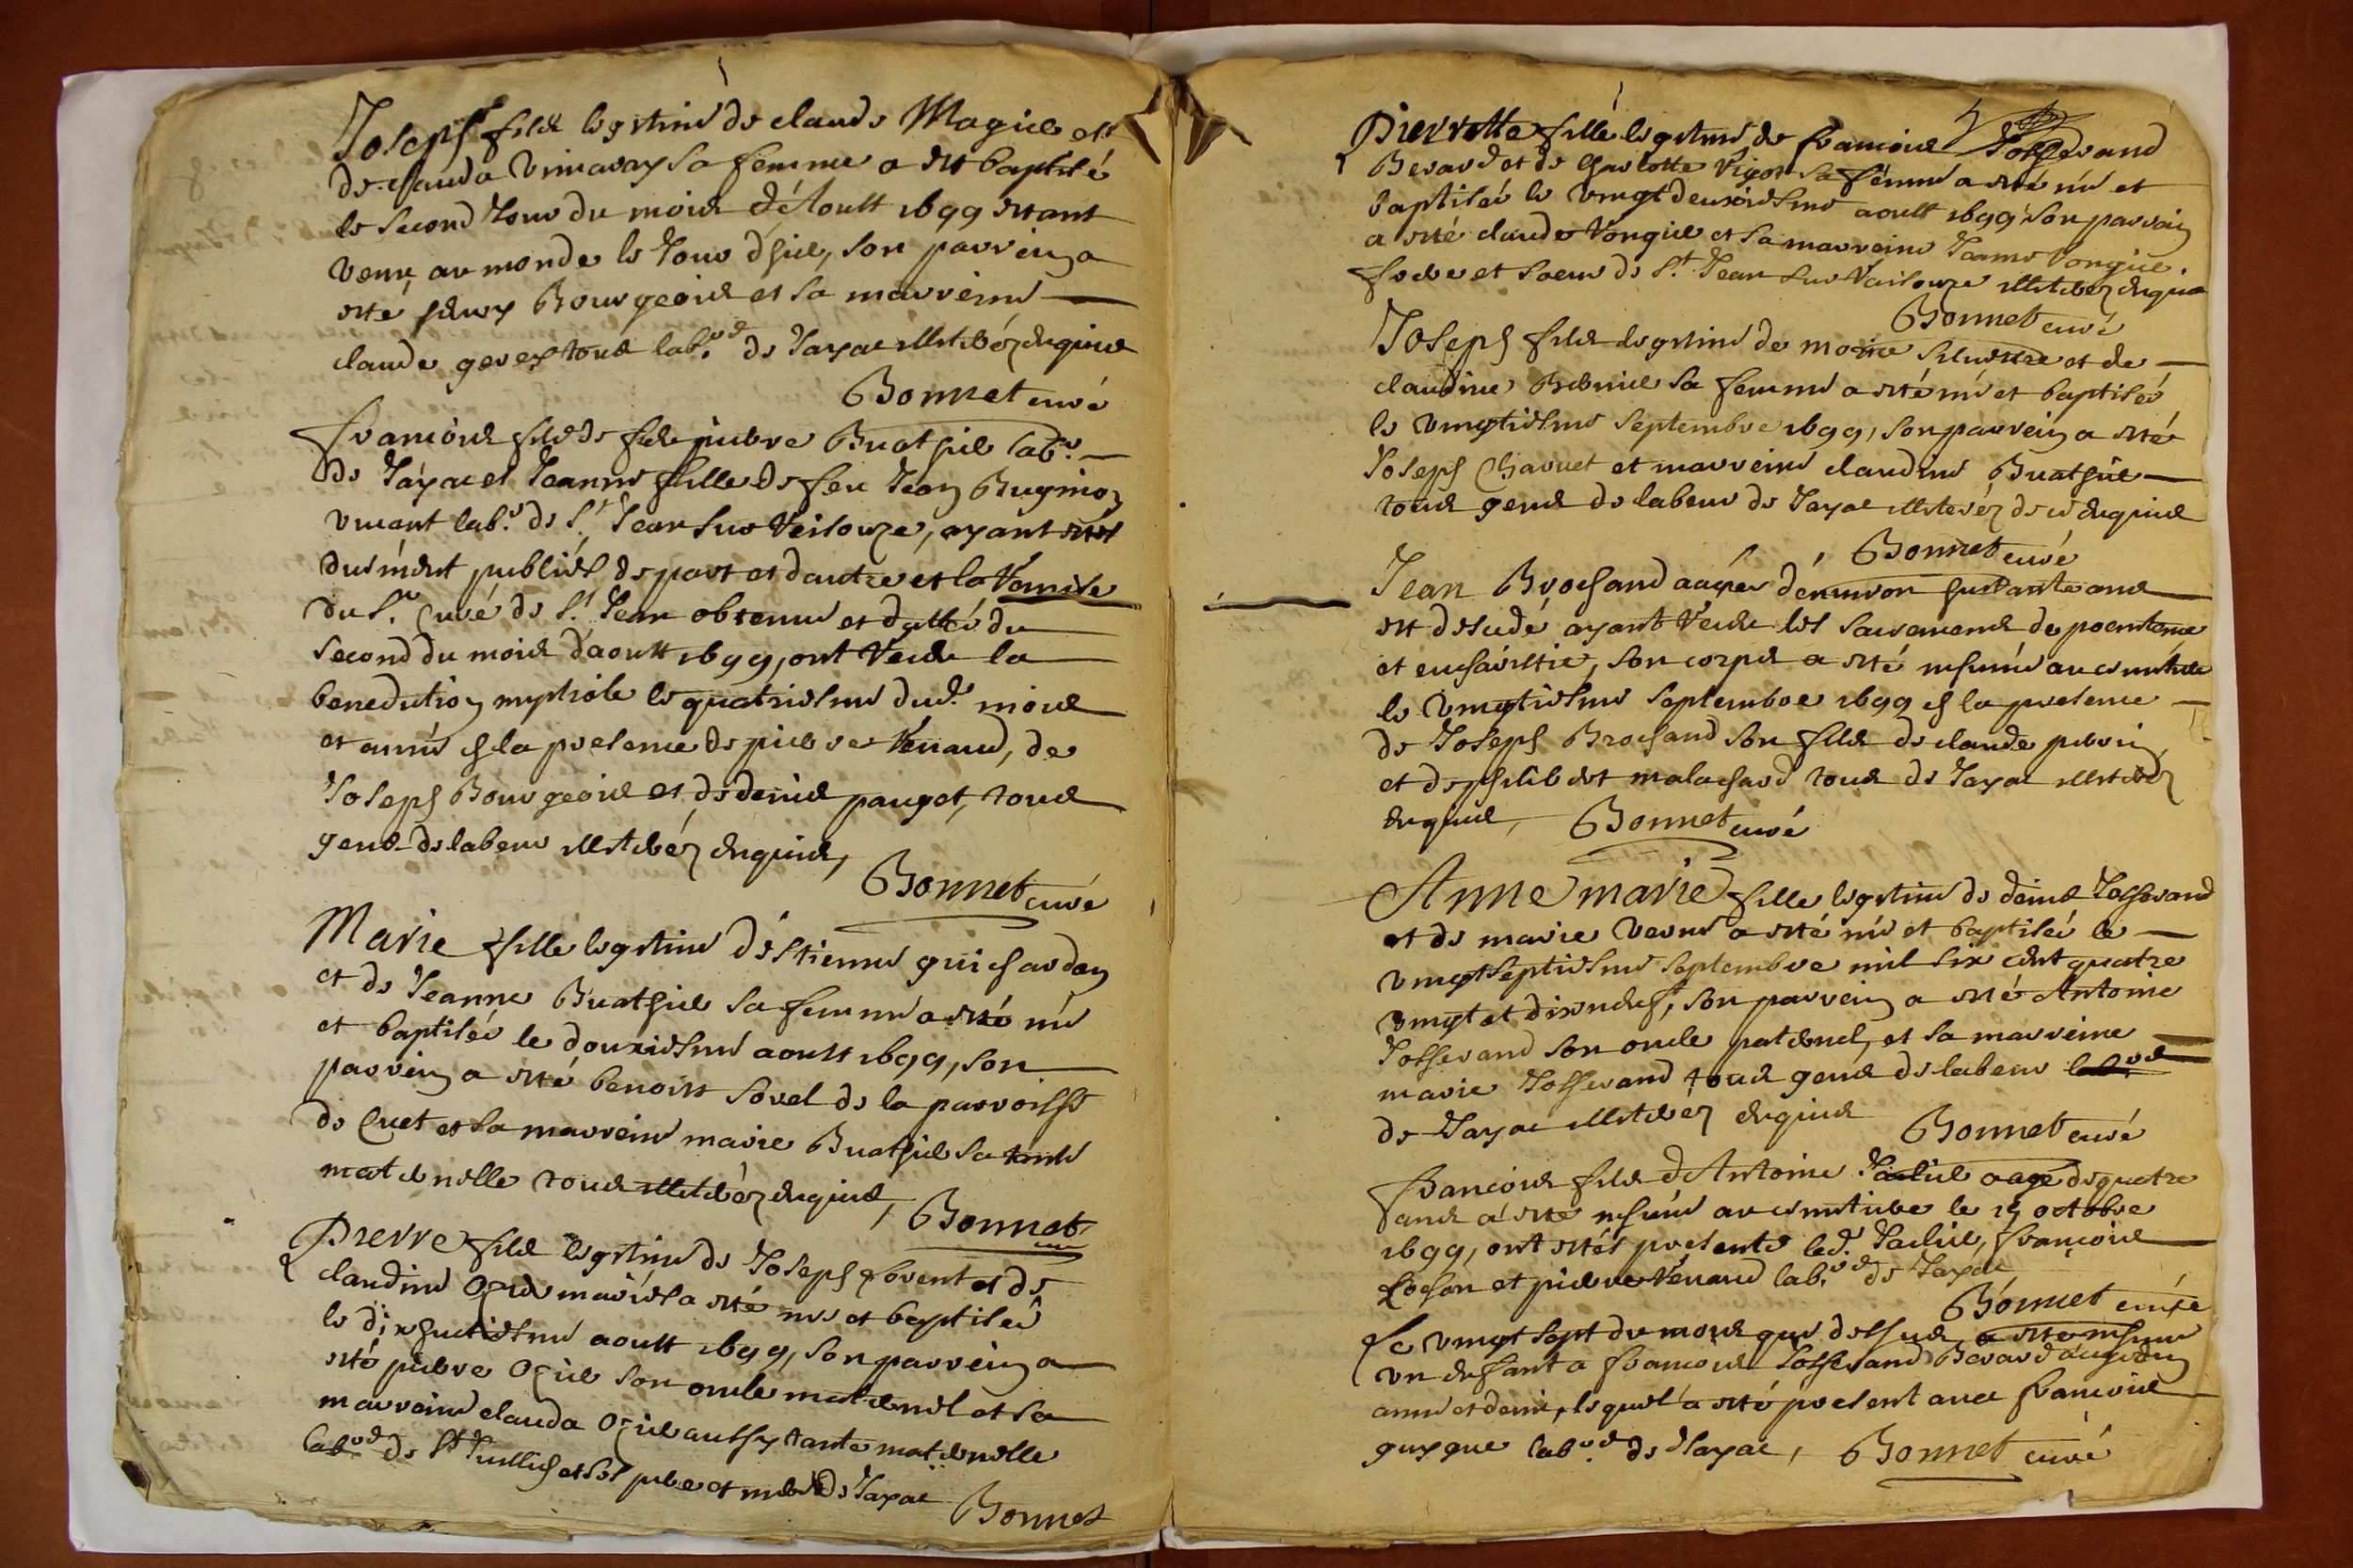 Joseph fils legitime de claude Magice et
de clauda Vimaray sa femme a este baptisé
le second Jour du moid d'Aoust 1699 estant
venu au monde le Jour d'hier, son parrein a
esté Bourgeois et sa marreine
claude tous lab.rs de Jayac illiterez enquis
Bonnet curé
francois fils de feu pierre Buathier lab.r
de Jayac et Jeanne fille de feu Jean Bugnion
vivant lab.r de S.t Jean sur Veisouze, ayant estés
duement publiés de part et dautre et la Remise
du S.r Curé de S.t Jean obtenue et dattée du
second du mois daoust 1699, ont Receu la
benediction nuptiale le quatriesme dud. mois
et année en la presence de pierre Renaud, de
Joseph Bourgeois et de denis pauget, tous
gens de labeur illiterez enquis,
Bonnet curé
Marie fille legitime d'estienne guichardon
et de Jeanne Buathier sa femme a esté née
et baptisée le douziesme aoust 1699, son
parrein a esté benoist sorel de la parroisse
de Cuet et sa marreine marie Buathier sa tante
maternelle tous illiterez enquis, Bonnet
curé
Pierre fils legitime de Joseph et de
claudine Ozier mariés a esté né et baptisé
le dixhuitiesme aoust 1699, son parrein a
esté pierre Ozier son oncle maternel et sa
marreine clauda Ozier aussy tante maternelle
lab.rs de S.t et les pere et mere de Jayac
Bonnet
Pierrette fille legitime de francois Josserand
Berard et de Charlotte Vigon sa femme a esté née et
baptisée le vingtdeuxiesme aoust 1699 son parrain
a esté claude Vongier et sa marreine Jeanne Vongier
frere et soeur de S.t Jean sur Vaisouze illiterez enquis
Bonnet curé
Joseph fils legitime de et de
claudine sa femme a esté né et baptisé
le vingtiesme Septembre 1699, son parrein a esté
Joseph Chavuet et marreine claudine Buathier
tous gens de labeur de Jayac illiterez de ce enquis
Bonnet curé
Jean Brochand aagé d'environ huitante ans
est decedé ayant Receu les sacremens de poenitence
et eucharistie, son corps a esté inhumé au cimitiere
le vingtiesme Septembre 1699 en la presence
de Joseph Brochand son fils de claude
et de philibert malachard tous de Jayac illiterez
enquis, Bonnet curé
Anne marie fille legitime de denis Josserand
et de marie a esté née et baptisée le
vingtseptiesme Septembre mil six cent quatre
vingt et dixneuf, son parrein a esté Antoine
Josserand son oncle paternel, et sa marreine
marie Josserand tous gens de labeur lab.rs
de Jayac illiterez enquis Bonnet curé
francois fils d'Antoine aagé de quatre
ans a esté inhumé au cimitiere le 15 octobre
1699, ont estés presents led. francois
Lochon et pierre Renaud lab.rs de Jayac
Bonnet curé
Le vingt sept du mois que dessus, a esté inhumé
un enfant a francois Josserand Berard
année et demie, lequel a esté present avec francois
guygue lab.rs de Jayac, Bonnet curé